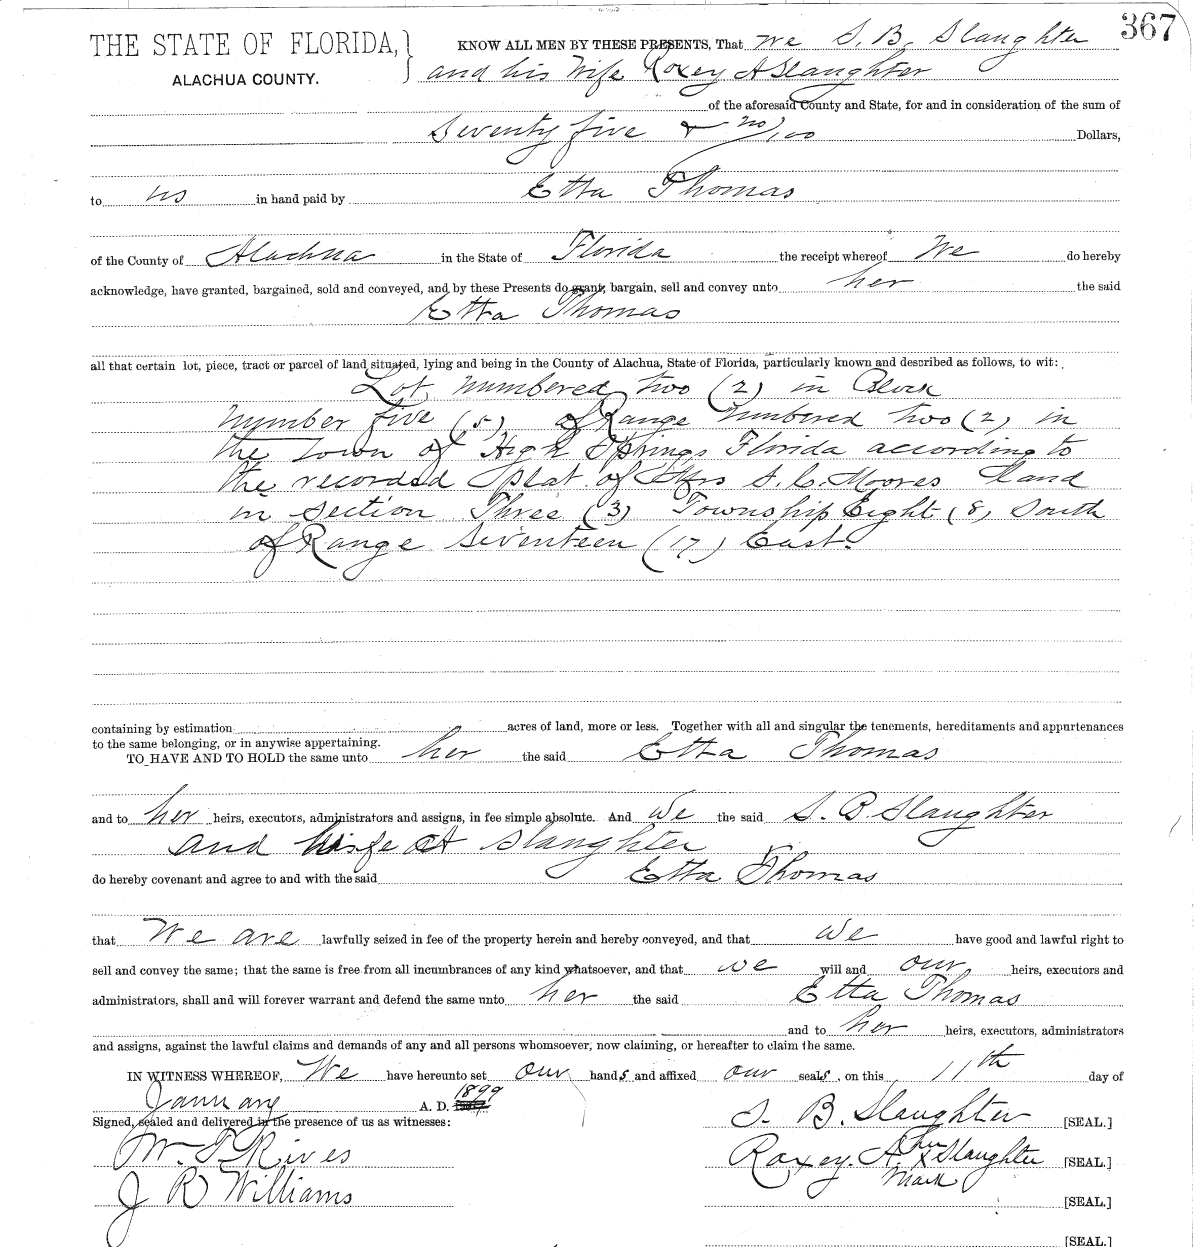 367
THE STATE OF FLORIDA,
ALACHUA COUNTY.
KNOW ALL MEN BY THESE PRESENTS, That We S. B. Slaughter
and his Wife Roxey A Slaughter
of the aforesaid County and State, for and in consideration of the sum of
Seventy five & no/100 Dollars,
to us in hand paid by Etta Thomas
of the County of Alachua in the State of Florida the receipt whereof We do hereby
acknowledge, have granted, bargained, sold and conveyed, and by these Presents do grant, bargain, sell and convey unto her the said
Etta Thomas
all that certain lot, piece, tract or parcel of land situated, lying and being in the County of Alachua, State of Florida, particularly known and described as follows, to wit:
Lot numbered two (2) in Block
number five (5) of Range numbered two (2) in
the Town of High Springs Florida according to
the recorded plat of Mrs S. C. Moores land
in Section Three (3) Township Eight (8) South
of Range Seventeen (17) East.
containing by estimation acres of land, more or less. Together with all and singular the tenements, hereditaments and appurtenances
to the same belonging, or in anywise appertaining.
TO HAVE AND TO HOLD the same unto her the said Etta Thomas
and to her heirs, executors, administrators and assigns, in fee simple absolute. And We the said S. B. Slaughter
and wife A Slaughter
do hereby covenant and agree to and with the said Etta Thomas
that We are lawfully seized in fee of the property herein and hereby conveyed, and that we have good and lawful right to
sell and convey the same; that the same is free from all incumbrances of any kind whatsoever, and that we will and our heirs, executors and
administrators, shall and will forever warrant and defend the same unto her the said Etta Thomas
and to her heirs, executors, administrators
and assigns, against the lawful claims and demands of any and all persons whomsoever, now claiming, or hereafter to claim the same.
IN WITNESS WHEREOF, We have hereunto set our hands and affixed our seals, on this 11th day of
January A. D. 1899
Signed, sealed and delivered in the presence of us as witnesses:
S. B. Slaughter [SEAL.]
Wm. T. Rives
Roxey. A. her x mark Slaughter [SEAL.]
J R Williams
[SEAL.]
[SEAL.]